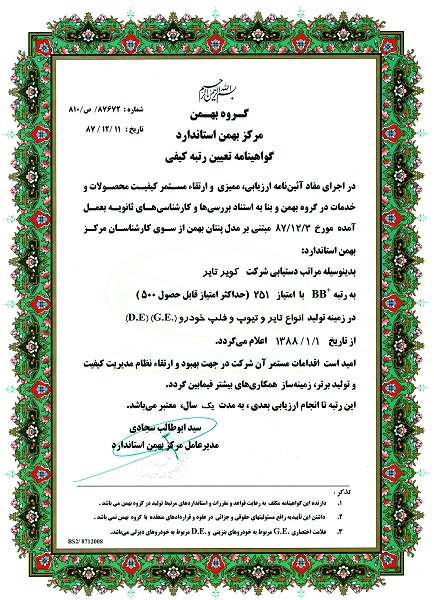 بسم الله الرحمن الرحیم
شماره : ۸۷۶۷۲/ص/۸۱۰
گروه بهمن
تاریخ : ۸۷/۱۲/۱۱
مرکز بهمن استاندارد
گواهینامه تعیین رتبه کیفی
در اجرای مفاد آئین‌نامه ارزیابی، ممیزی و ارتقاء مستمر کیفیت محصولات و
خدمات در گروه بهمن و بنا به استناد بررسی‌ها و کارشناسی‌های ثانویه بعمل
آمده مورخ ۸۷/۱۲/۳ مبتنی بر مدل پنتان بهمن از سوی کارشناسان مرکز
بهمن استاندارد:
بدینوسیله مراتب دستیابی شرکت کویر تایر
به رتبه BB+ با امتیاز ۳۵۱ (حداکثر امتیاز قابل حصول ۵۰۰)
در زمینه تولید انواع تایر و تیوپ و فلپ خودرو (G.E.) (D.E)
از تاریخ ۱۳۸۸/۱/۱ اعلام می‌گردد.
امید است اقدامات مستمر آن شرکت در جهت بهبود و ارتقاء نظام مدیریت کیفیت
و تولید برتر، زمینه‌ساز همکاری‌های بیشتر فیمابین گردد.
این رتبه تا انجام ارزیابی بعدی، به مدت یک سال، معتبر می‌باشد.
سید ابوطالب سجادی
مدیرعامل مرکز بهمن استاندارد
تذکر :
۱. دارنده این گواهینامه مکلف به رعایت قواعد و مقررات و استانداردهای مرتبط تولید در گروه بهمن می باشد .
۲. داشتن این تاییدیه رافع مسئولیتهای حقوقی و جزائی در عقود و قراردادهای منعقده با گروه بهمن نمی باشد .
۳. علامت اختصاری G.E. مربوط به خودروهای بنزینی و D.E. مربوط به خودروهای دیزلی می‌باشد.
BS2/ 8712008